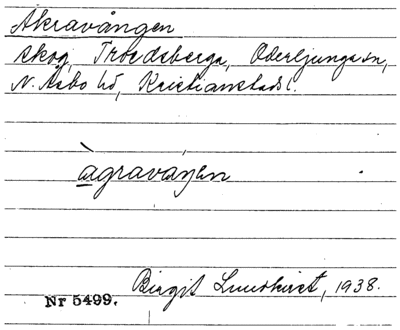 Åkravången
skog, Troedsberga, Oderljunga sn,
N. Åsbo hd, Kristianstads l.
àgravaŋen
Birgit Lundkvist, 1938.
Nr 5499.